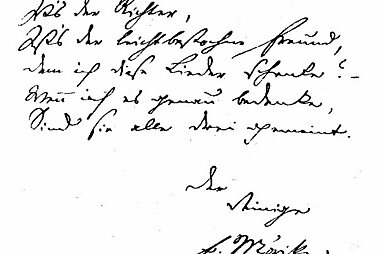 Ist's der Richter,
Ist's der leichtbestochne Freund,
dem ich diese Lieder schenke? –
Wenn ich es genau bedenke,
Sind sie alle drei gemeint.
Der
Deinige
E. Mörike.